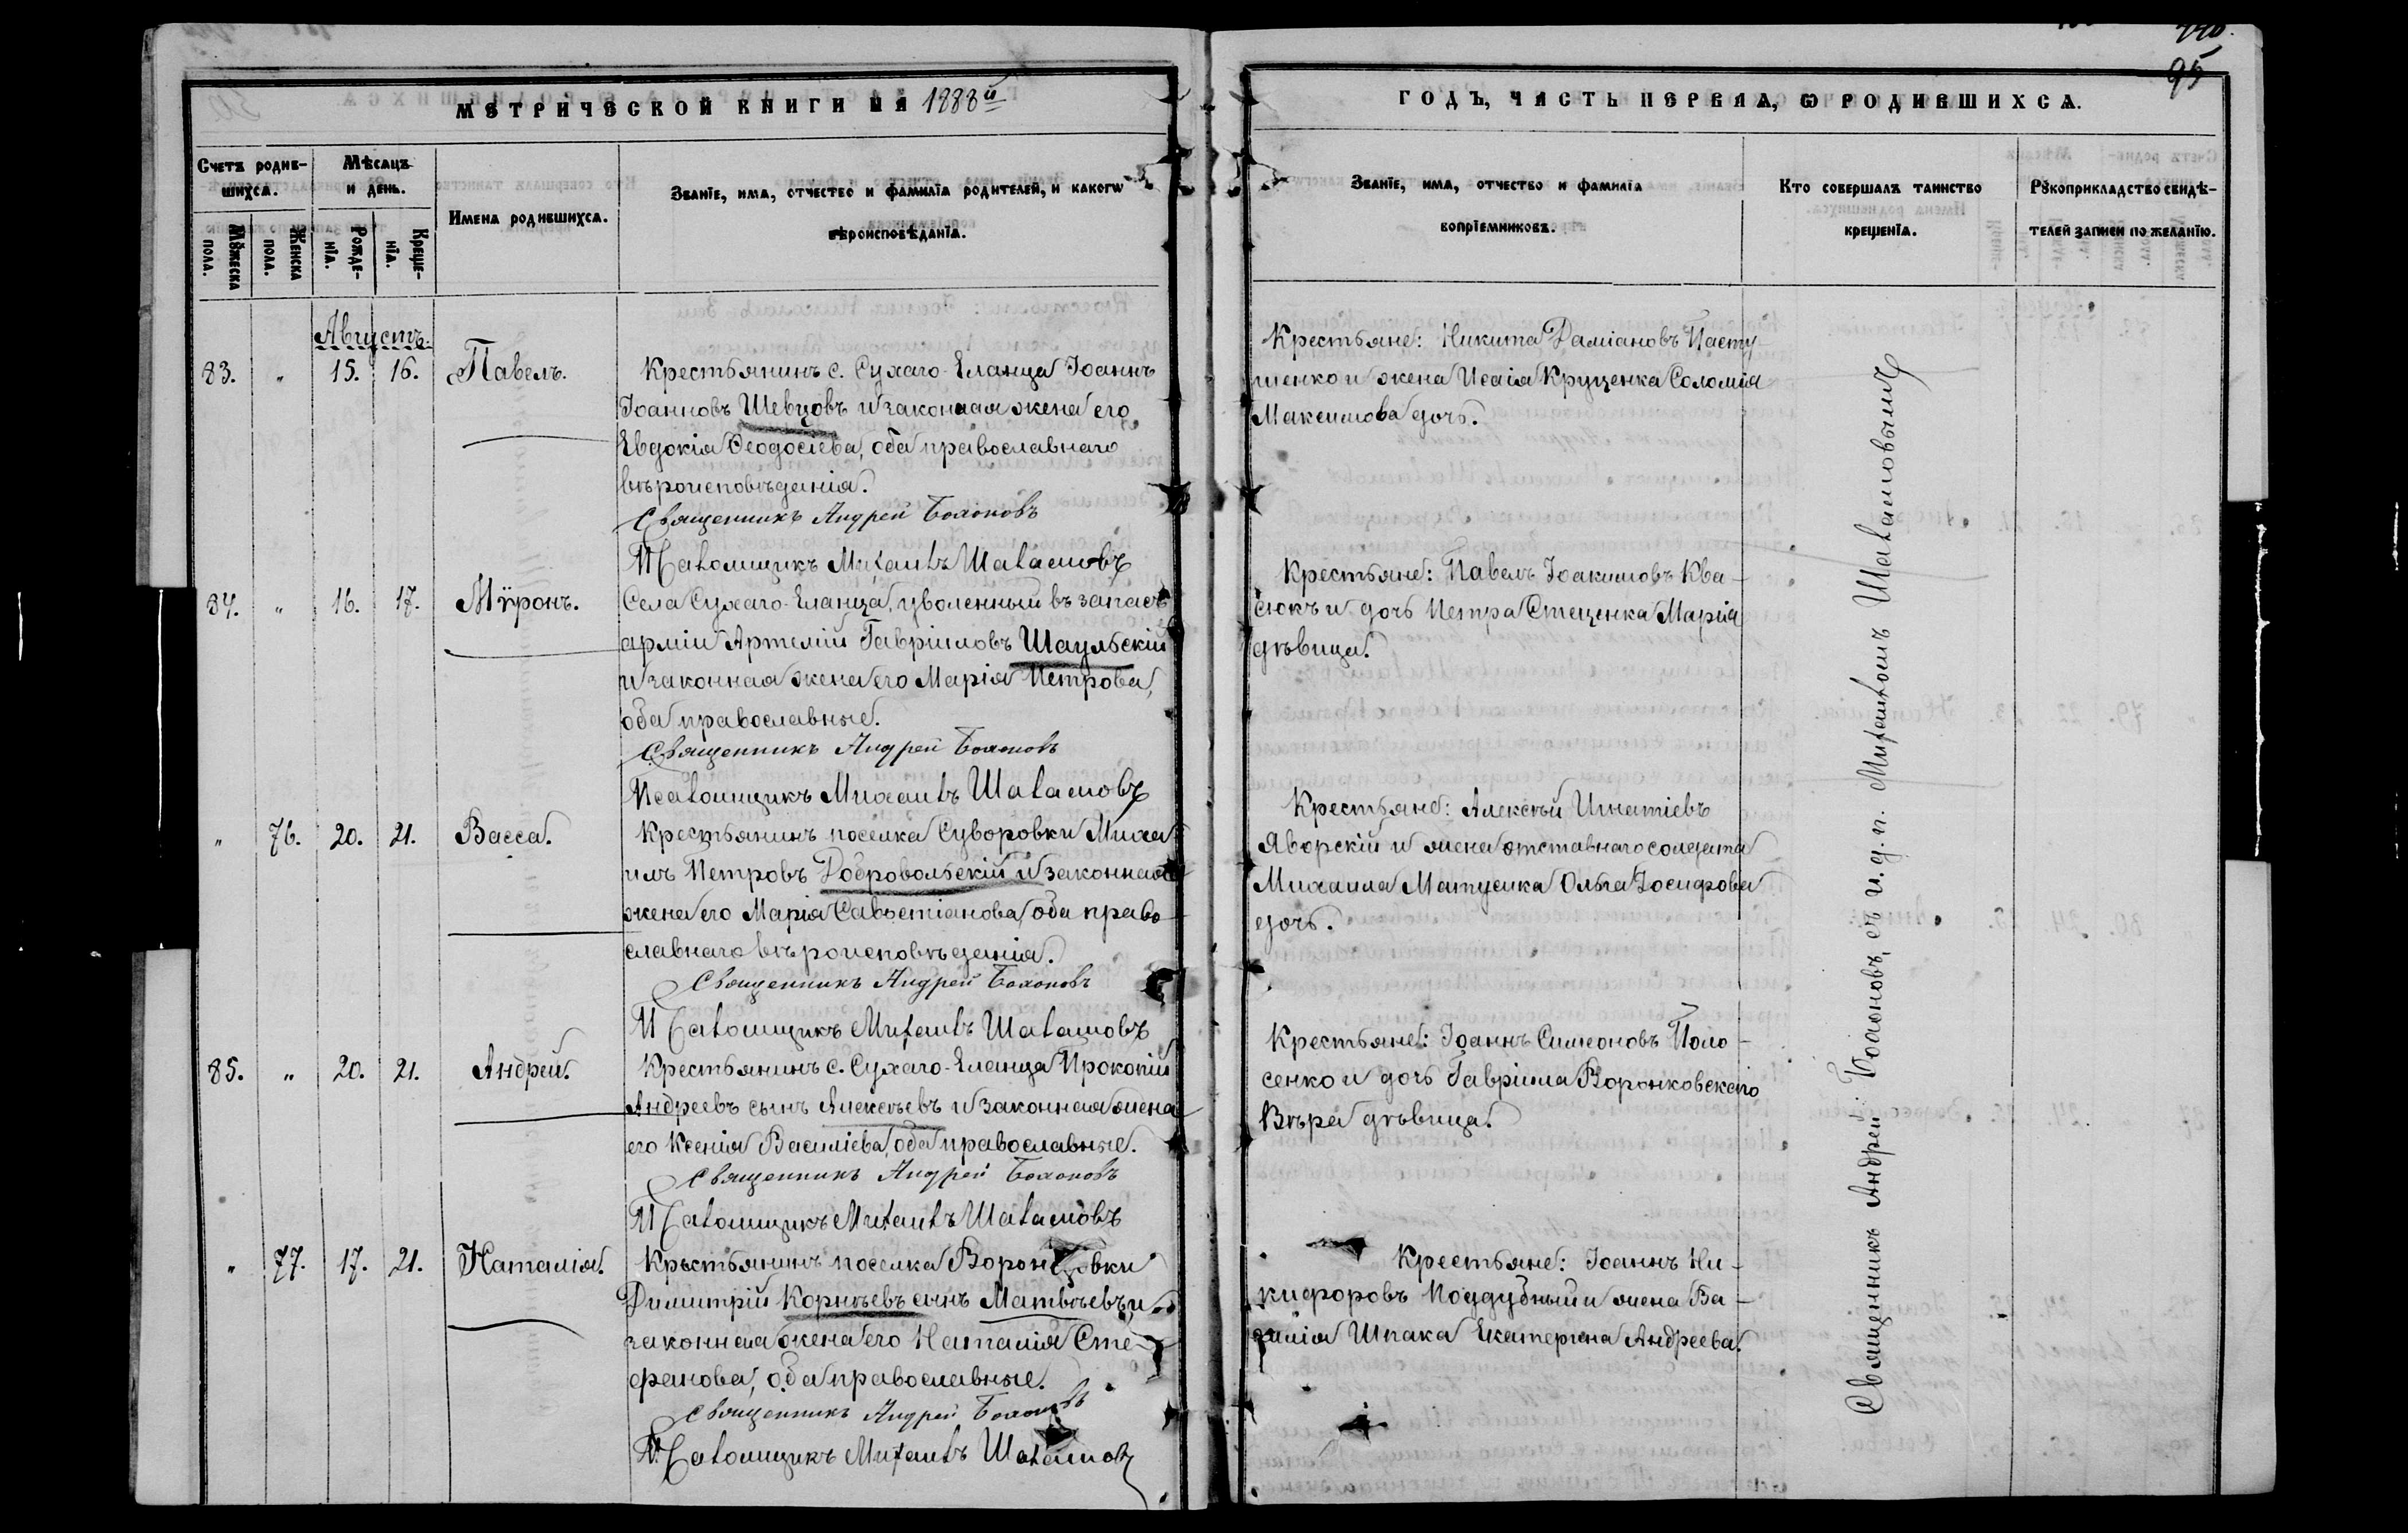 МЕТРИЧЕСКОЙ КНИГИ НА 1888й
Счетъ родив-
шихся.
Мѣсяцъ
и день.
Мужеска пола.
Женска пола.
Рожде-нія.
Креще-нія.
Имена родившихся.
Званіе, имя, отчество и фамилія родителей, и какогѡ
вѣроисповѣданія.
Августъ.
83. „ 15. 16. Павелъ.
Крестьянинъ с. Сухаго-Еланца Іоаннъ
Іоанновъ Шевцовъ и законная жена его
Евдокія Ѳеодосіева, оба православнаго
вѣроисповѣданія.
Священникъ Андрей
Псаломщикъ Михаилъ Шаламовъ
84. „ 16. 17. Мѵронъ.
Села Сухаго-Еланца, уволенный въ запасъ
арміи Артемій Гавріиловъ Шаульскій
и законная жена его Марія Петрова,
оба православные.
Священникъ Андрей
Псаломщикъ Михаилъ Шаламовъ
„ 76. 20. 21. Васса.
Крестьянинъ поселка Суворовки Миха-
илъ Петровъ Добровольскій и законная
жена его Марія Савостіанова, оба право-
славнаго вѣроисповѣданія.
Священникъ Андрей
Псаломщикъ Михаилъ Шаламовъ
85. „ 20. 21. Андрей.
Крестьянинъ с. Сухаго-Еланца Прокопій
Андреевъ сынъ Алексѣевъ и законная жена
его Ксенія Василіева, оба православные.
Священникъ Андрей
Псаломщикъ Михаилъ Шаламовъ
„ 77. 17. 21. Наталія.
Крѣстьянинъ поселка Воронцовки
Димитрій Корнѣевъ сынъ Матвѣевъ и
законная жена его Наталія Сте-
фанова, оба православные.
Священникъ Андрей
Псаломщикъ Михаилъ Шаламовъ
95
ГОДЪ, ЧАСТЬ ПЕРВАЯ, Ѡ РОДИВШИХСЯ.
Званіе, имя, отчество и фамилія
воспріемниковъ.
Кто совершалъ таинство
крещенія.
Рукоприкладство свидѣ-
телей записи по желанію.
Крестьяне: Никита Даміановъ Пасту-
шенко и жена Исаія Круценка Соломія
Максимова дочь.
Крестьяне: Павелъ Іоакимовъ Ква-
сюкъ и дочь Петра Стеценка Марія
дѣвица.
Крестьяне: Алексѣй Игнатіевъ
Яворскій и жена отставнаго солдата
Михаила Матусика Ольга Іосифова
дочь.
Крестьяне: Іоаннъ Симеоновъ Поло-
сенко и дочь Гавріила Воронковскаго
Вѣра дѣвица.
Крестьяне: Іоаннъ Ни-
кифоровъ Поддубный и жена Ва-
силія Шпака Екатерина Андреева.
Священникъ Андрей съ и. д. п. Михаиломъ Шаламовымъ